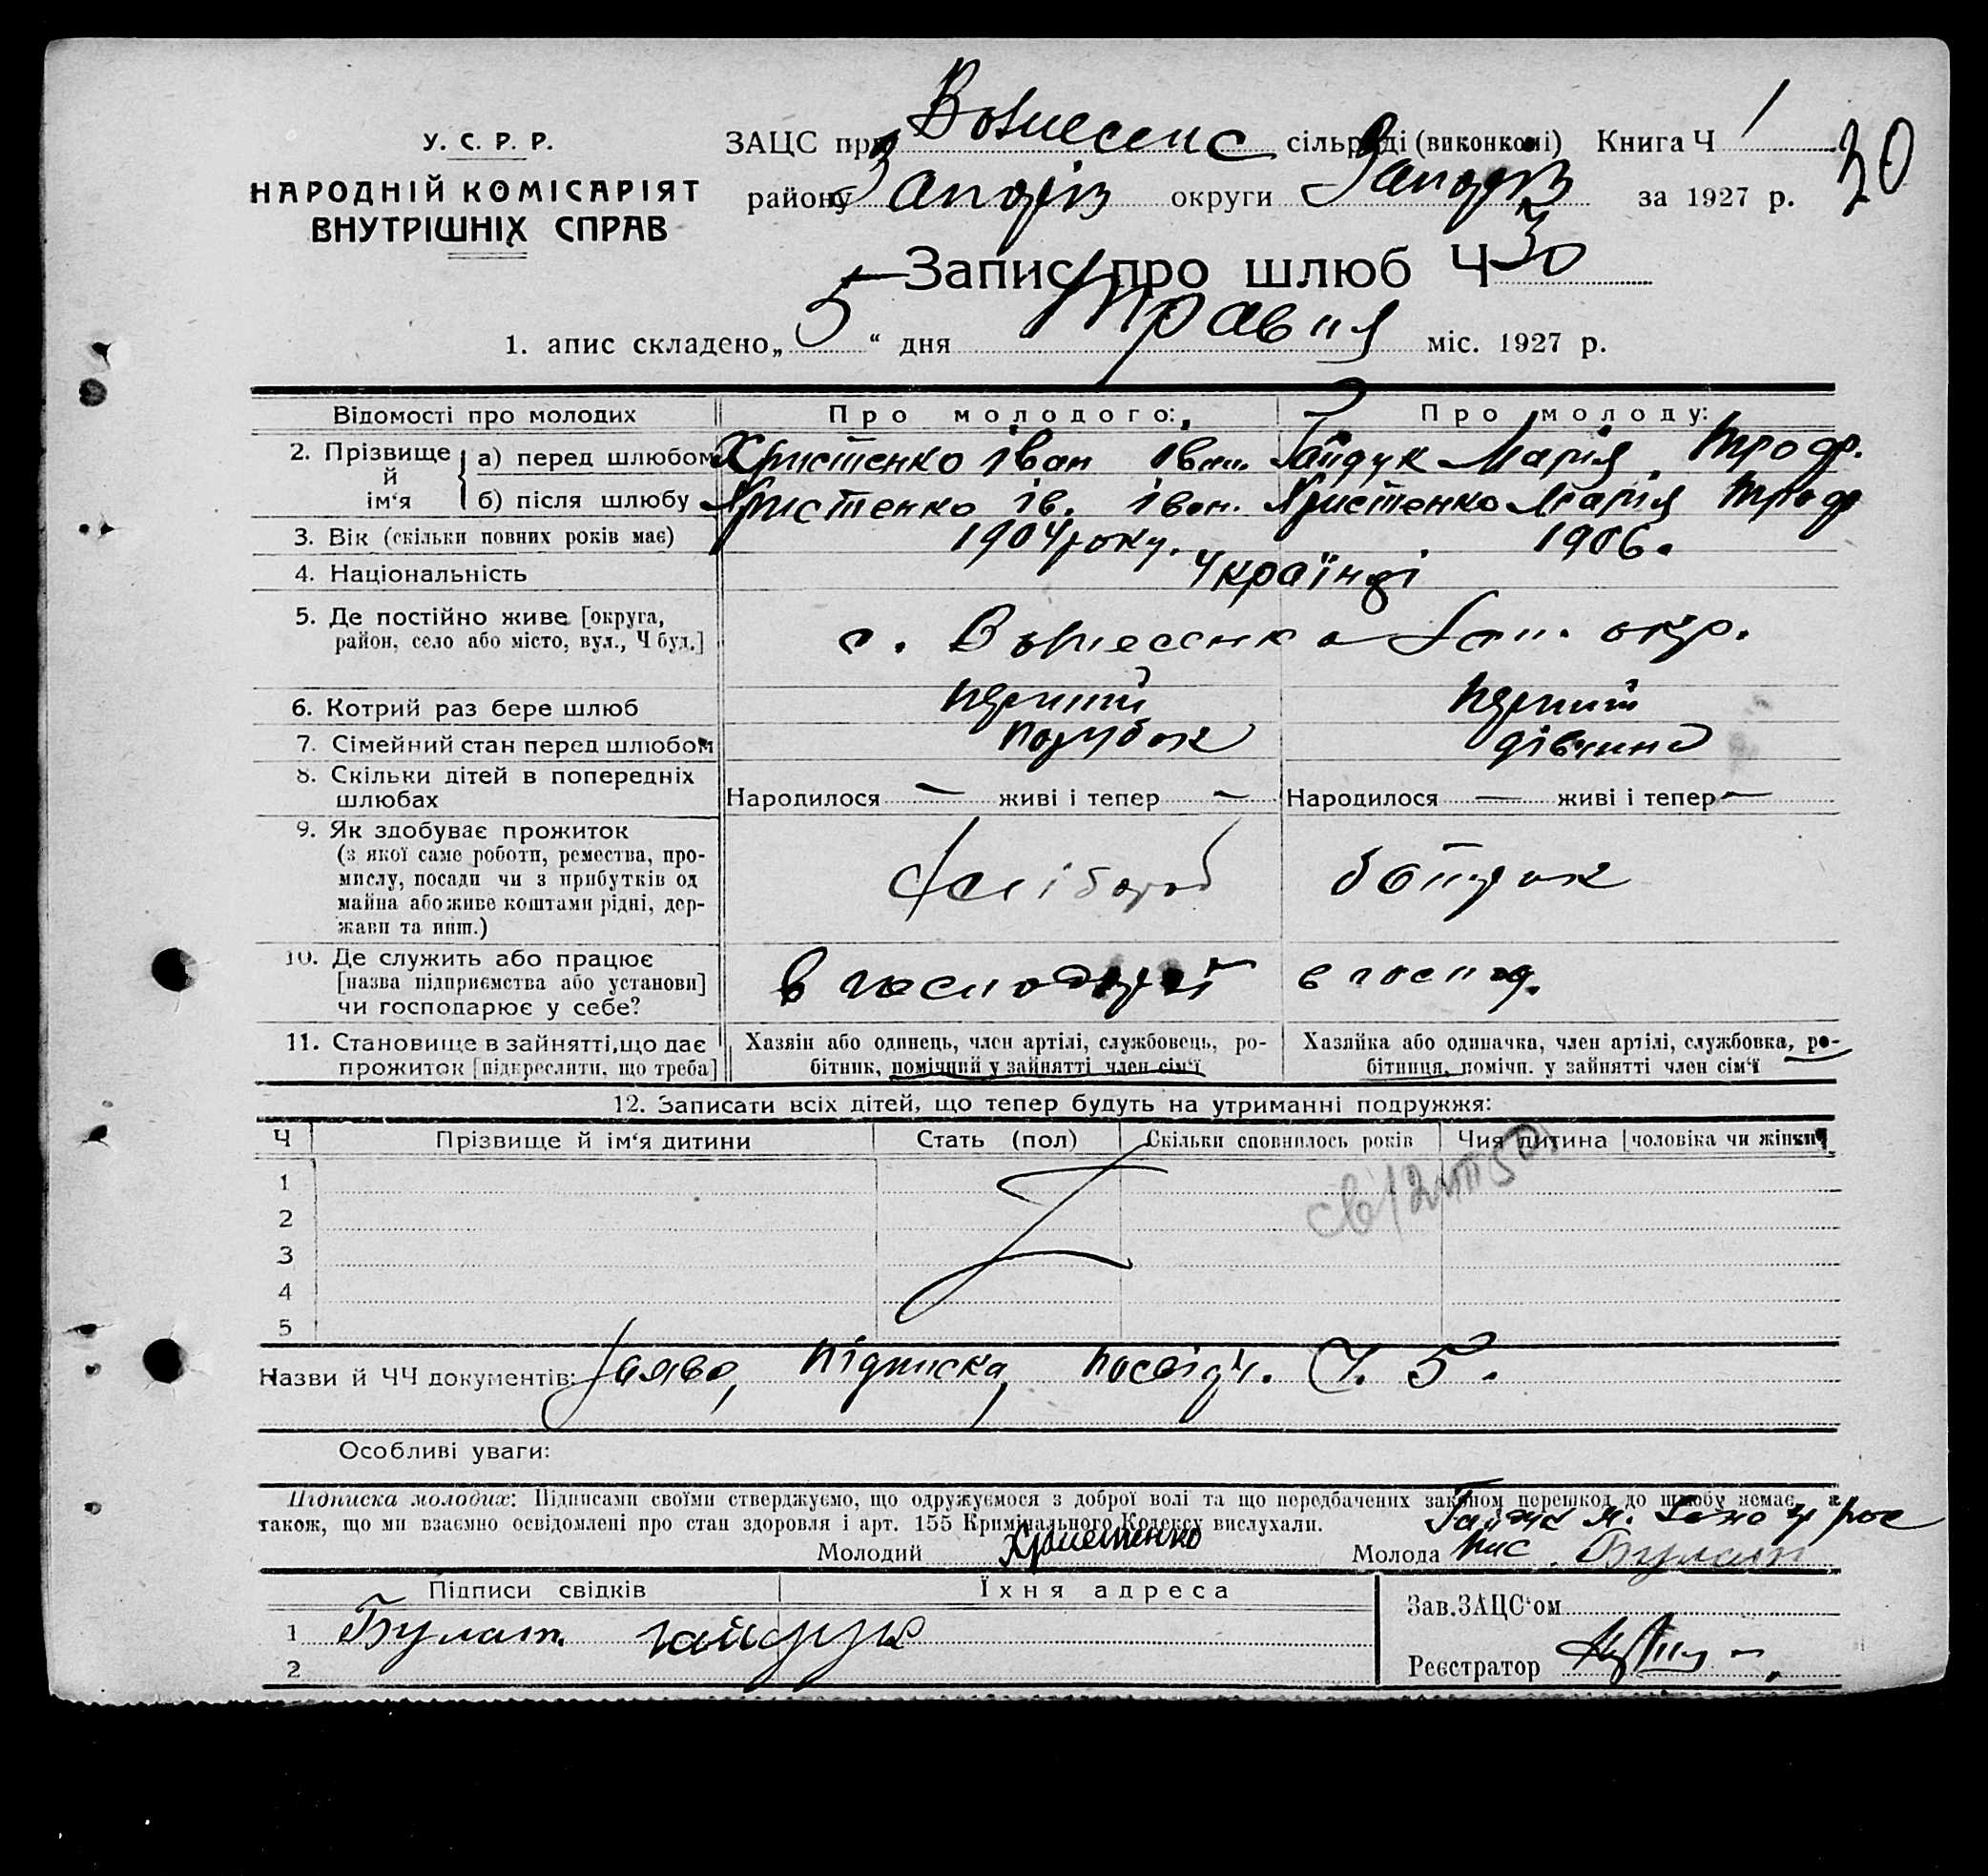 У. С. Р. Р.
НАРОДНІЙ КОМІСАРІЯТ
ВНУТРІШНІХ СПРАВ
ЗАЦС при Вознесенс сільраді (виконкомі) Книга Ч 1
30
району Запоріз округи Запоріз за 1927 р.
Запис про шлюб Ч 30
1. апис складено „ 5 “ дня Травня міс. 1927 р.
Відомості про молодих Про молодого: Про молоду:
2. Прізвище й ім‘я
а) перед шлюбом Христенко Іван Іван. Гайдук Марія Троф.
б) після шлюбу Христенко Ів. Іван. Христенко Марія Троф
3. Вік (скільки повних років має) 1904 року. 1906.
4. Національність Українці
5. Де постійно живе [округа, район, село або місто, вул., Ч буд.] с. Вознесенка Зап. окр.
6. Котрий раз бере шлюб перший перший
7. Сімейний стан перед шлюбом парубок дівчина
8. Скільки дітей в попередніх шлюбах Народилося — живі і тепер — Народилося — живі і тепер —
9. Як здобуває прожиток
(з якої саме роботи, ремества, про-
мислу, посади чи з прибутків од
майна або живе коштами рідні, дер-
жави та инш.)
хлібороб
10. Де служить або працює
[назва підприємства або установи]
чи господарює у себе?
в господ.
11. Становище в зайнятті, що дає
прожиток [підкреслити, що треба]
Хазяін або одинець, член артілі, службовець, ро-
бітник, помічний у зайнятті член сім‘ї
Хазяйка або одиначка, член артілі, службовка, ро-
бітниця, помічн. у зайнятті член сім‘ї
12. Записати всіх дітей, що тепер будуть на утриманні подружжя:
Ч Прізвище й ім‘я дитини Стать (пол) Скільки сповнилось років Чия дитина [чоловіка чи жінки]
1
2
3
4
5
Назви й ЧЧ документів: Заява, підписка, посвідч. Ч. 5.
Особливі уваги:
Підписка молодих: Підписами своїми стверджуємо, що одружуємося з доброї волі та що передбачених законом перешкод до шлюбу немає, а
також, що ми взаємно освідомлені про стан здоровля і арт. 155 Кримінального Кодексу вислухали.
Молодий Христенко Молода Гайдук М. пис. Булат
Підписи свідків Їхня адреса
1 Булат Гайдук
2
Зав. ЗАЦС‘ом
Реєстратор